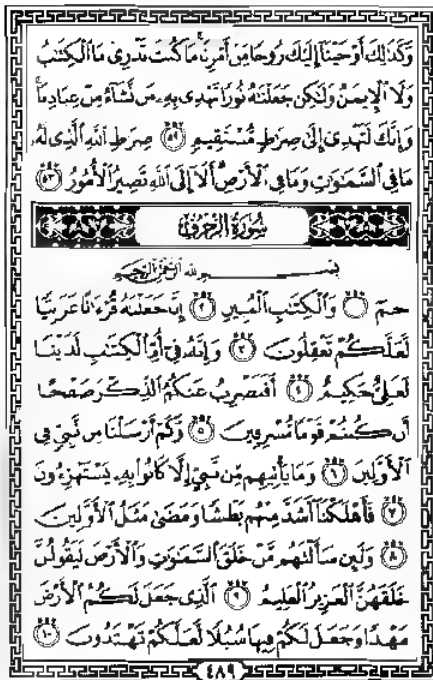 وَكَذَٰلِكَ أَوْحَيْنَا إِلَيْكَ رُوحًا مِّنْ أَمْرِنَا ۚ مَا كُنتَ تَدْرِى مَا ٱلْكِتَٰبُ
وَلَا ٱلْإِيمَٰنُ وَلَٰكِن جَعَلْنَٰهُ نُورًا نَّهْدِى بِهِۦ مَن نَّشَآءُ مِنْ عِبَادِنَا ۚ
وَإِنَّكَ لَتَهْدِىٓ إِلَىٰ صِرَٰطٍ مُّسْتَقِيمٍ ۝٥٢ صِرَٰطِ ٱللَّهِ ٱلَّذِى لَهُۥ
مَا فِى ٱلسَّمَٰوَٰتِ وَمَا فِى ٱلْأَرْضِ ۗ أَلَآ إِلَى ٱللَّهِ تَصِيرُ ٱلْأُمُورُ ۝٥٣
سُورَةُ الزُّخْرُفِ
بِسْمِ ٱللَّهِ ٱلرَّحْمَٰنِ ٱلرَّحِيمِ
حمٓ ۝ وَٱلْكِتَٰبِ ٱلْمُبِينِ ۝٢ إِنَّا جَعَلْنَٰهُ قُرْءَٰنًا عَرَبِيًّا
لَّعَلَّكُمْ تَعْقِلُونَ ۝٣ وَإِنَّهُۥ فِىٓ أُمِّ ٱلْكِتَٰبِ لَدَيْنَا
لَعَلِىٌّ حَكِيمٌ ۝٤ أَفَنَضْرِبُ عَنكُمُ ٱلذِّكْرَ صَفْحًا
أَن كُنتُمْ قَوْمًا مُّسْرِفِينَ ۝٥ وَكَمْ أَرْسَلْنَا مِن نَّبِىٍّ فِى
ٱلْأَوَّلِينَ ۝٦ وَمَا يَأْتِيهِم مِّن نَّبِىٍّ إِلَّا كَانُوا۟ بِهِۦ يَسْتَهْزِءُونَ
۝٧ فَأَهْلَكْنَآ أَشَدَّ مِنْهُم بَطْشًا وَمَضَىٰ مَثَلُ ٱلْأَوَّلِينَ
۝٨ وَلَئِن سَأَلْتَهُم مَّنْ خَلَقَ ٱلسَّمَٰوَٰتِ وَٱلْأَرْضَ لَيَقُولُنَّ
خَلَقَهُنَّ ٱلْعَزِيزُ ٱلْعَلِيمُ ۝٩ ٱلَّذِى جَعَلَ لَكُمُ ٱلْأَرْضَ
مَهْدًا وَجَعَلَ لَكُمْ فِيهَا سُبُلًا لَّعَلَّكُمْ تَهْتَدُونَ ۝١٠
٤٨٩